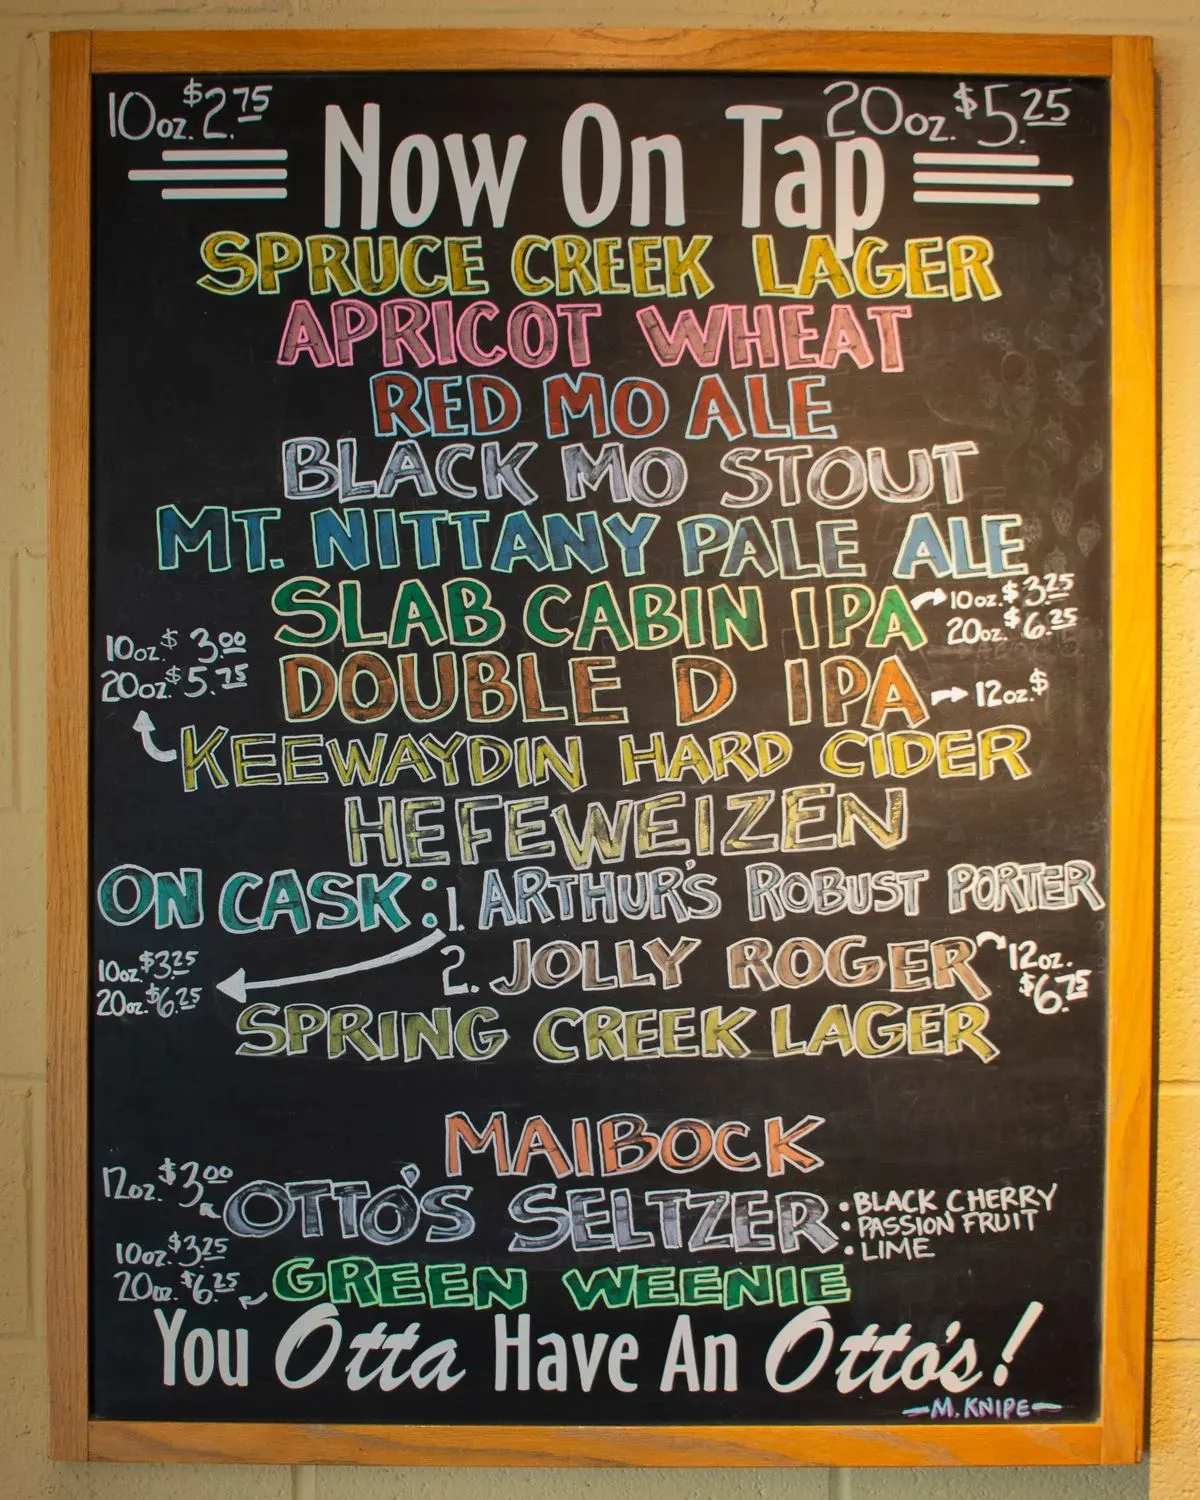 10oz. $2.75
20oz. $5.25
Now On Tap
SPRUCE CREEK LAGER
APRICOT WHEAT
RED MO ALE
BLACK MO STOUT
MT. NITTANY PALE ALE
SLAB CABIN IPA
10oz. $3.25
20oz. $6.25
DOUBLE D IPA
12oz. $
10oz. $3.00
20oz. $5.75
KEEWAYDIN HARD CIDER
HEFEWEIZEN
ON CASK: 1. ARTHUR'S ROBUST PORTER
10oz. $3.25
20oz. $6.25
2. JOLLY ROGER
12oz.
$6.75
SPRING CREEK LAGER
MAIBOCK
12oz. $3.00
OTTO'S SELTZER
• BLACK CHERRY
• PASSION FRUIT
• LIME
10oz. $3.25
20oz. $6.25
GREEN WEENIE
You Otta Have An Otto's!
—M. KNIPE—